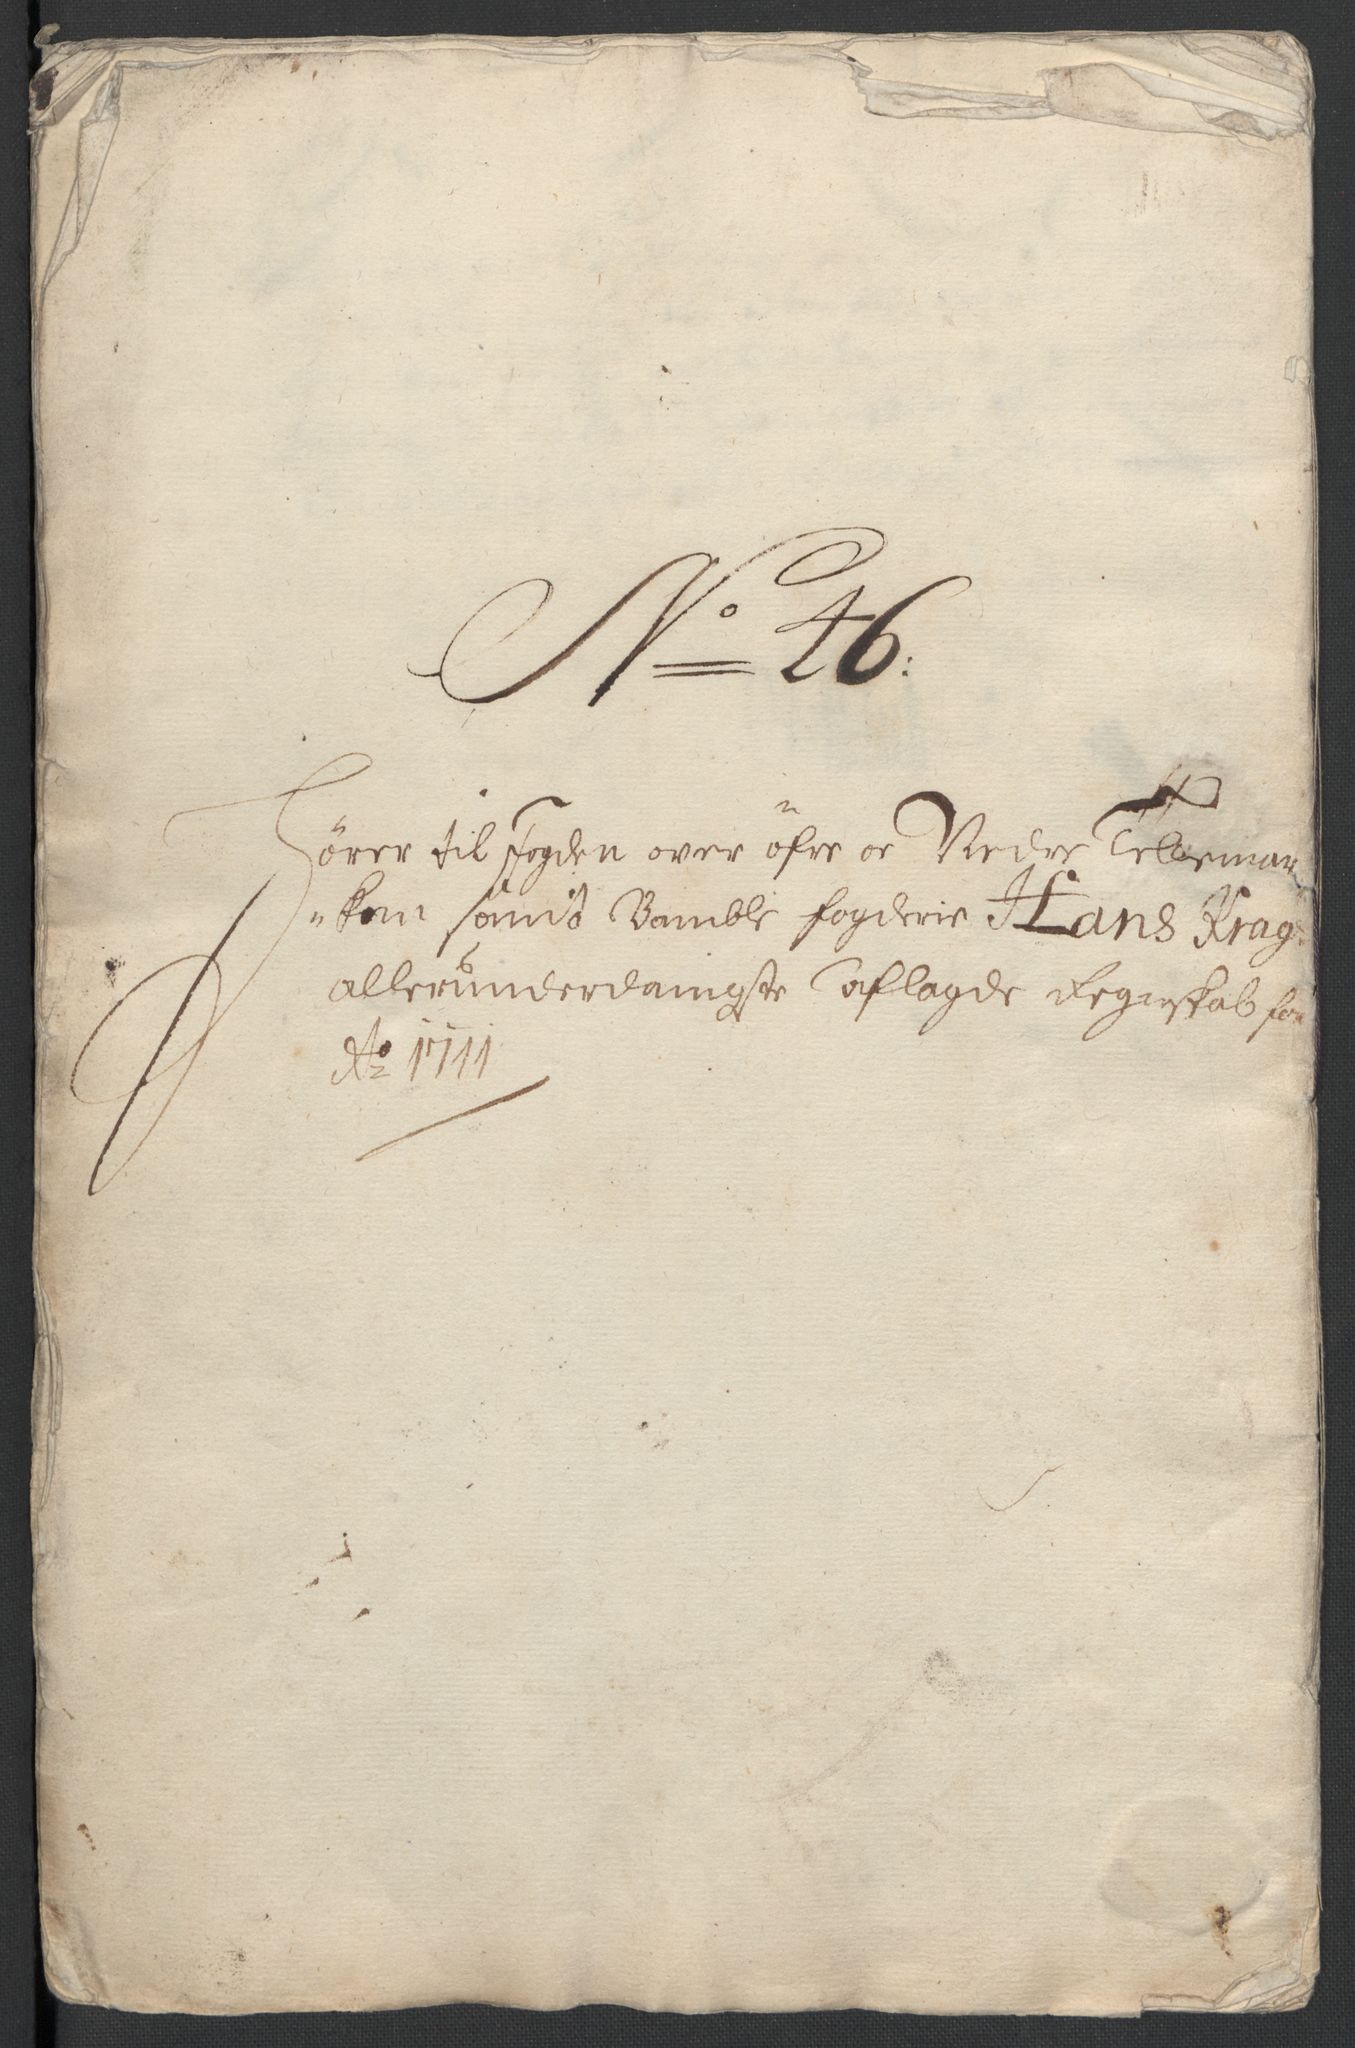 No 46:
Hörer til Fogden over öfre oc Nedre Tellemar
"ken samt Bamble fogderie Hans Krag
allerunderdanigste aflagde Regenskab for
Ao 1711